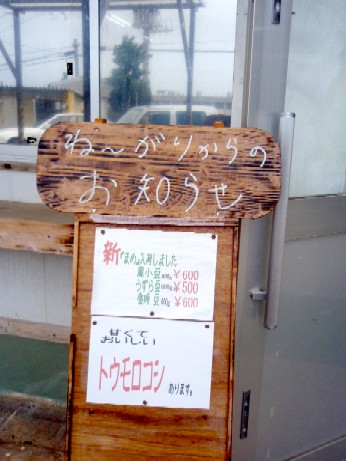 ね〜がりからの
お知らせ
新『まめ』入荷しました
小豆 ¥600
うずら豆 ¥500
豆 ¥600
甘くて
おいしい
トウモロコシ
あります。